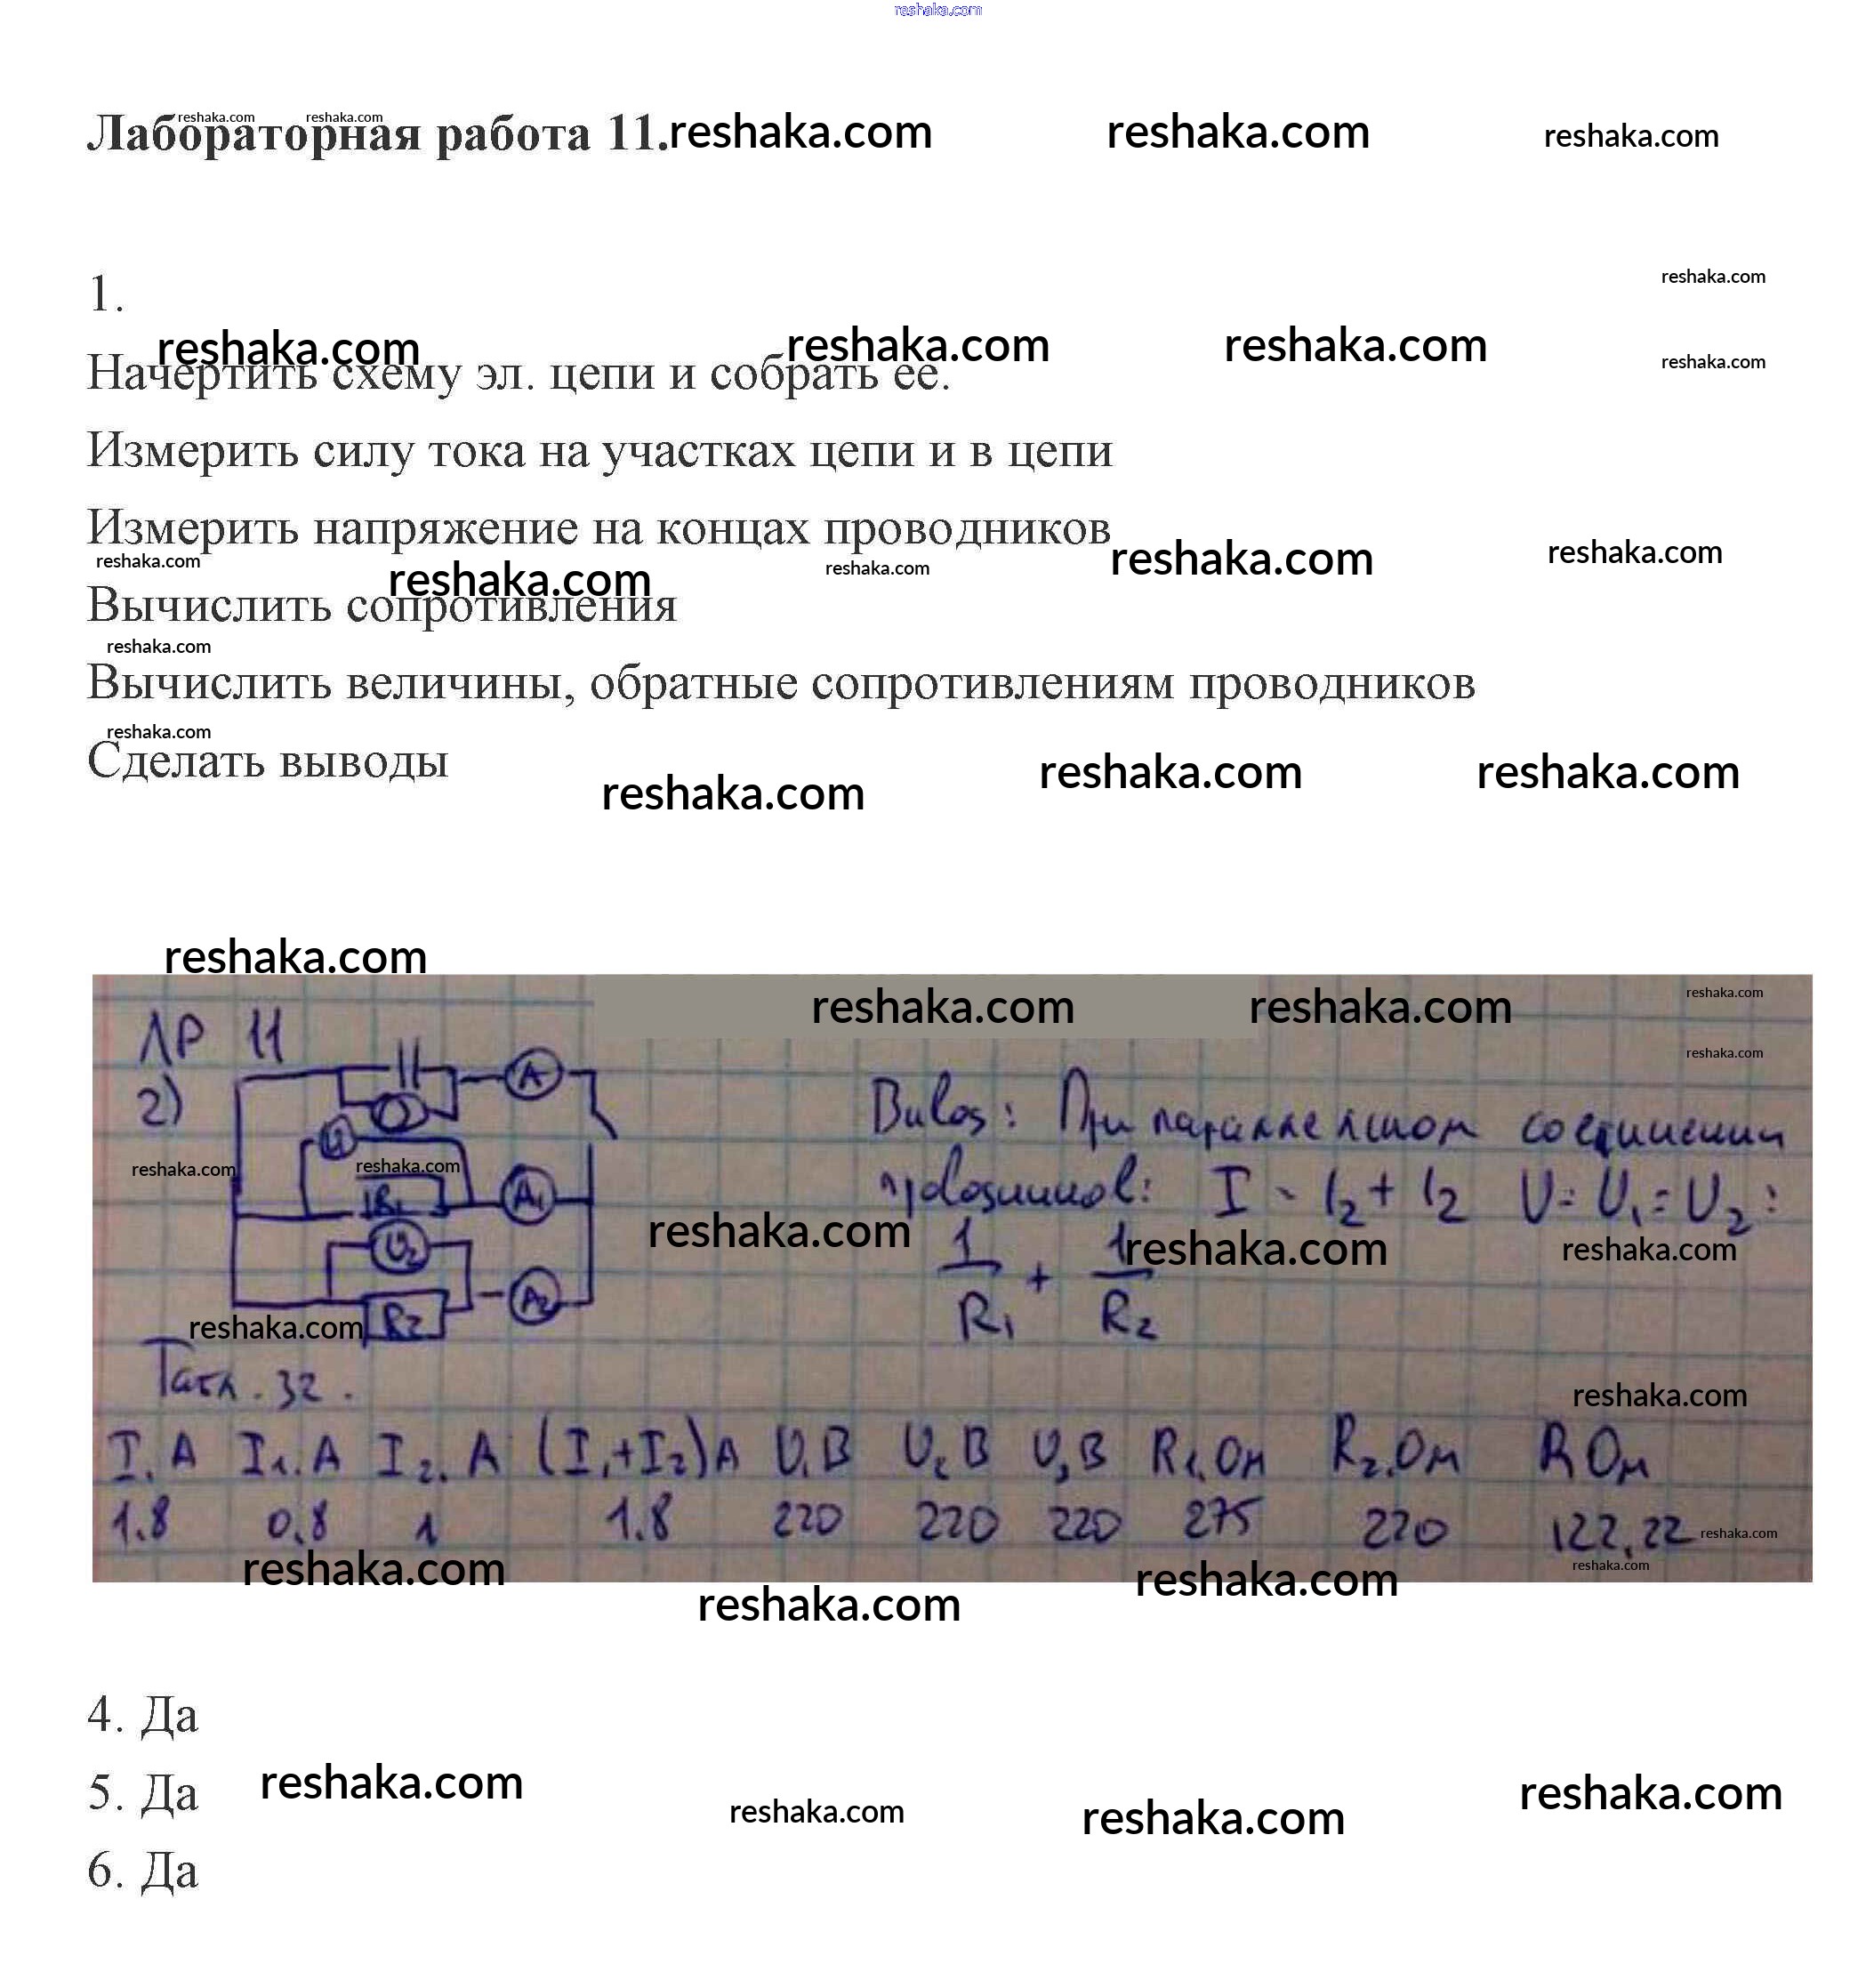 reshaka.com
Лабораторная работа 11.
reshaka.com reshaka.com reshaka.com reshaka.com reshaka.com
1.
reshaka.com
reshaka.com reshaka.com reshaka.com reshaka.com
Начертить схему эл. цепи и собрать ее.
Измерить силу тока на участках цепи и в цепи
Измерить напряжение на концах проводников
reshaka.com reshaka.com reshaka.com reshaka.com reshaka.com
Вычислить сопротивления
reshaka.com
Вычислить величины, обратные сопротивлениям проводников
reshaka.com
Сделать выводы
reshaka.com reshaka.com reshaka.com
reshaka.com
reshaka.com reshaka.com reshaka.com
ЛР 11
reshaka.com
2)
A
При параллельном соединении
reshaka.com reshaka.com
R1 A1
проводников: I = I2 + I2 U = U1 = U2 :
reshaka.com reshaka.com reshaka.com
U2
1/R1 + 1/R2
R2 A2
reshaka.com
Табл. 32.
reshaka.com
I, A I1, A I2, A (I1+I2) A U, B U2 B U, B R1, Ом R2, Ом R Ом
1.8 0,8 1 1.8 220 220 220 275 220 122,22
reshaka.com
reshaka.com reshaka.com reshaka.com
reshaka.com
4. Да
5. Да
reshaka.com reshaka.com reshaka.com reshaka.com
6. Да